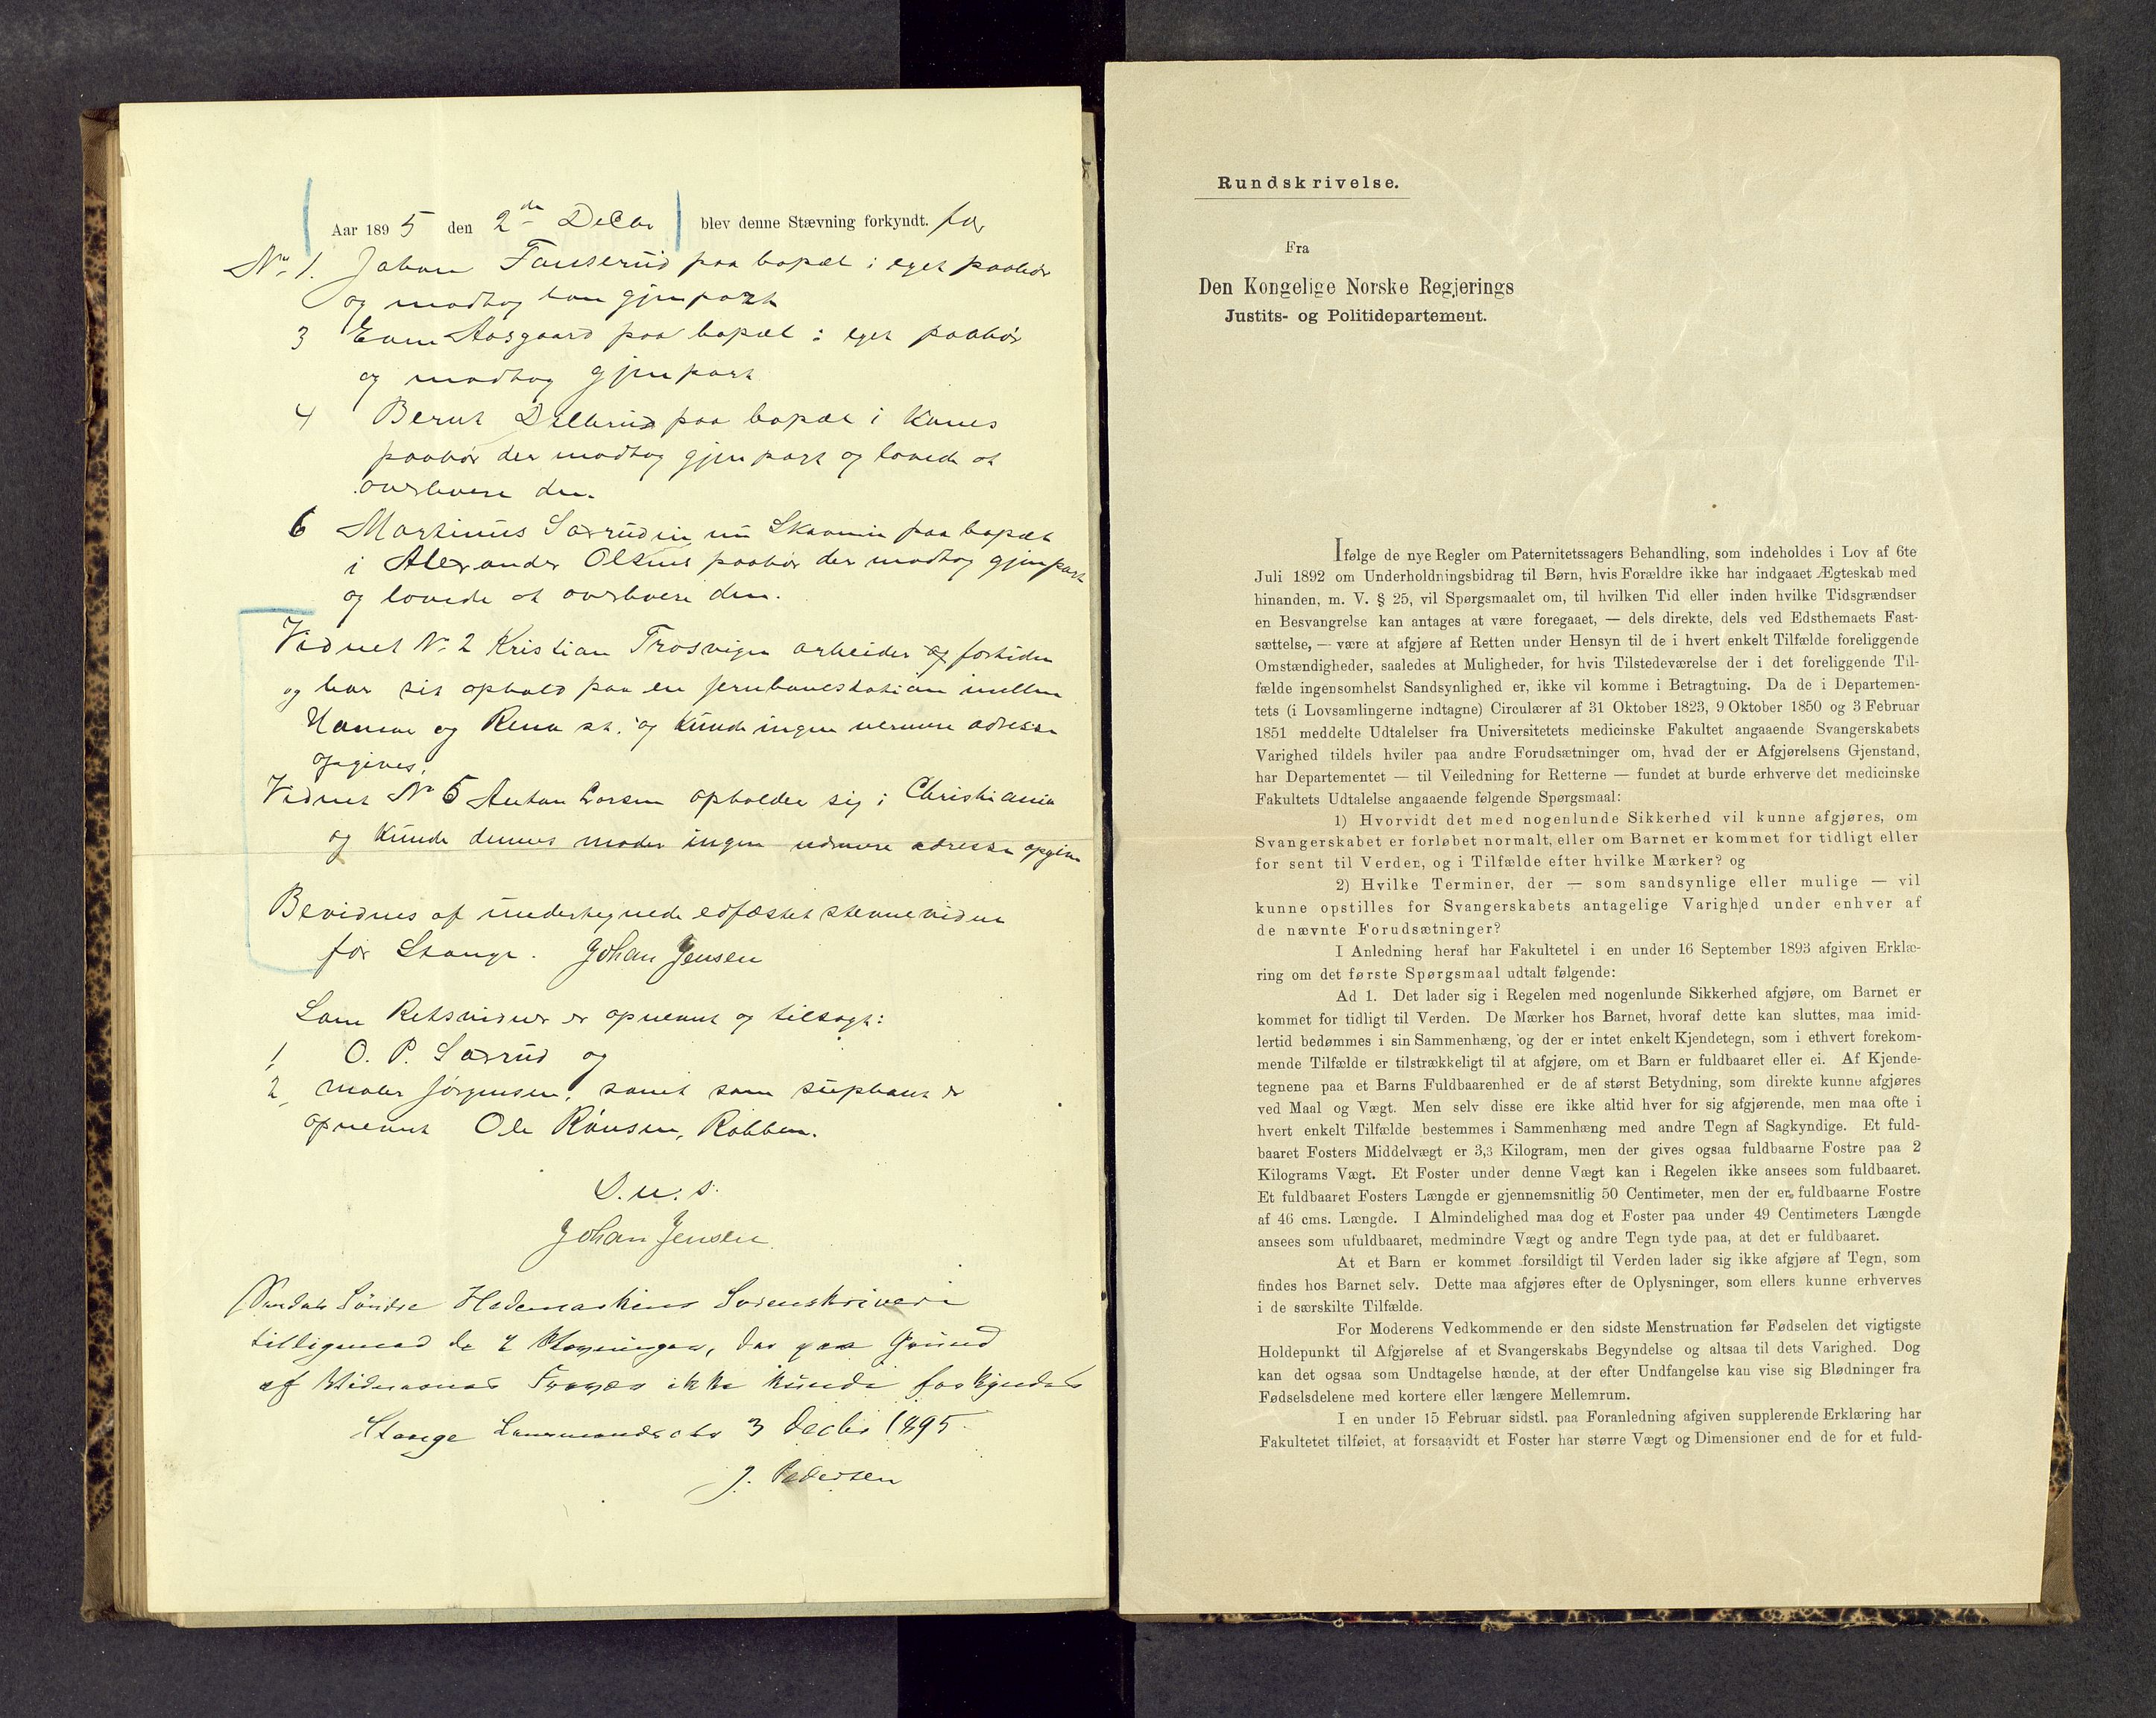 Aar 1895 den 2de Decbr blev denne Stævning forkyndt. for
No 1. Johan Fauserud paa bopæl i eget paahør
og modtog han gjenpart
3 Even Aasgaard paa bopæl i eget paahør
og modtog gjenpart
4 Bernt paa bopæl i Kones
paahør der modtog gjenpart og lovede at
overlevere den.
6 Martinus Saxrudin nu paa bopæl
i Alexander Olsens paahør der modtog gjenpart
og lovede at overlevere den.
Vidnet No 2 Kristian Trosvigen arbeider for tiden
og har sit ophold paa en jernbanestation mellem
Hamar og Rena st. og kunde ingen nermere adresse
opgives.
Vidnet No 5 Anton Larsen opholder sig i Christiania
og kunde dennes moder ingen nermere adresse opgive
Bevidnes af undertegnede edfæstet stevnevidne
for Stange. Johan Jensen
Som Retsvidner er opnevnt og tilsagt:
1, O. P. Saxrud og
2, maler Jørgensen, samt som supleant er
opnevnt Ole Robben.
D.u.s.
Johan Jensen
Sendes Søndre Hedemarkens Sorenskriveri
tilligemed de 2 Stevninger, der paa Grund
af Vidnernes Fravær ikke kunde forkyndes
Stange Lensmandsktr 3 Decbr 1895.
J. Pedersen
Rundskrivelse.
Fra
Den Kongelige Norske Regjerings
Justits- og Politidepartement.
Ifølge de nye Regler om Paternitetssagers Behandling, som indeholdes i Lov af 6te
Juli 1892 om Underholdningsbidrag til Børn, hvis Forældre ikke har indgaaet Ægteskab med
hinanden, m. V. § 25, vil Spørgsmaalet om, til hvilken Tid eller inden hvilke Tidsgrændser
en Besvangrelse kan antages at være foregaaet, — dels direkte, dels ved Edsthemaets Fast-
sættelse, — være at afgjøre af Retten under Hensyn til de i hvert enkelt Tilfælde foreliggende
Omstændigheder, saaledes at Muligheder, for hvis Tilstedeværelse der i det foreliggende Til-
fælde ingensomhelst Sandsynlighed er, ikke vil komme i Betragtning. Da de i Departemen-
tets (i Lovsamlingerne indtagne) Circulærer af 31 Oktober 1823, 9 Oktober 1850 og 3 Februar
1851 meddelte Udtalelser fra Universitetets medicinske Fakultet angaaende Svangerskabets
Varighed tildels hviler paa andre Forudsætninger om, hvad der er Afgjørelsens Gjenstand,
har Departementet — til Veiledning for Retterne — fundet at burde erhverve det medicinske
Fakultets Udtalelse angaaende følgende Spørgsmaal:
1) Hvorvidt det med nogenlunde Sikkerhed vil kunne afgjøres, om
Svangerskabet er forløbet normalt, eller om Barnet er kommet for tidligt eller
for sent til Verden, og i Tilfælde efter hvilke Mærker? og
2) Hvilke Terminer, der — som sandsynlige eller mulige — vil
kunne opstilles for Svangerskabets antagelige Varighed under enhver af
de nævnte Forudsætninger?
I Anledning heraf har Fakultetel i en under 16 September 1893 afgiven Erklæ-
ring om det første Spørgsmaal udtalt følgende:
Ad 1. Det lader sig i Regelen med nogenlunde Sikkerhed afgjøre, om Barnet er
kommet for tidligt til Verden. De Mærker hos Barnet, hvoraf dette kan sluttes, maa imid-
lertid bedømmes i sin Sammenhæng, og der er intet enkelt Kjendetegn, som i ethvert forekom-
mende Tilfælde er tilstrækkeligt til at afgjøre, om et Barn er fuldbaaret eller ei. Af Kjende-
tegnene paa et Barns Fuldbaarenhed er de af størst Betydning, som direkte kunne afgjøres
ved Maal og Vægt. Men selv disse ere ikke altid hver for sig afgjørende, men maa ofte i
hvert enkelt Tilfælde bestemmes i Sammenhæng med andre Tegn af Sagkyndige. Et fuld-
baaret Fosters Middelvægt er 3,3 Kilogram, men der gives ogsaa fuldbaarne Fostre paa 2
Kilograms Vægt. Et Foster under denne Vægt kan i Regelen ikke ansees som fuldbaaret.
Et fuldbaaret Fosters Længde er gjennemsnitlig 50 Centimeter, men der er fuldbaarne Fostre
af 46 cms. Længde. I Almindelighed maa dog et Foster paa under 49 Centimeters Længde
ansees som ufuldbaaret, medmindre Vægt og andre Tegn tyde paa, at det er fuldbaaret.
At et Barn er kommet forsildigt til Verden lader sig ikke afgjøre af Tegn, som
findes hos Barnet selv. Dette maa afgjøres efter de Oplysninger, som ellers kunne erhverves
i de særskilte Tilfælde.
For Moderens Vedkommende er den sidste Menstruation før Fødselen det vigtigste
Holdepunkt til Afgjørelse af et Svangerskabs Begyndelse og altsaa til dets Varighed. Dog
kan det ogsaa som Undtagelse hænde, at der efter Undfangelse kan vise sig Blødninger fra
Fødselsdelene med kortere eller længere Mellemrum.
I en under 15 Februar sidstl. paa Foranledning afgiven supplerende Erklæring har
Fakultetet tilføiet, at forsaavidt et Foster har større Vægt og Dimensioner end de for et fuld-